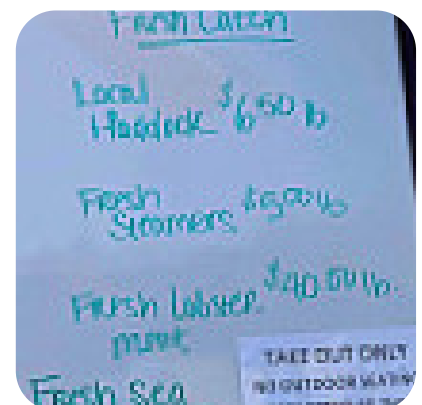 Fresh Catch
Local
Haddock $6.50 lb
Fresh
Steamers
Fresh Lobster $40.00 lb.
meat
Fresh Sea
TAKE OUT ONLY
NO OUTDOOR SEATING